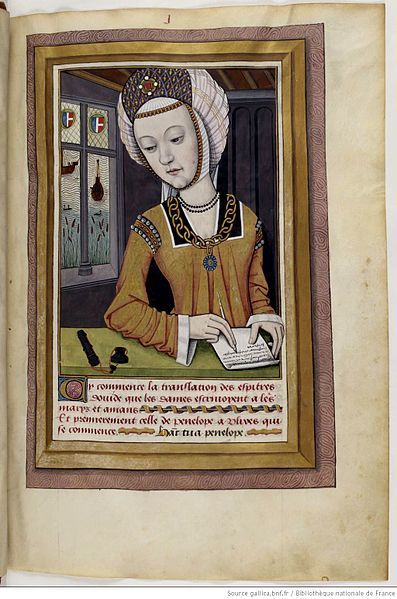 Cy commence la translation des epistres
douide que les dames escriuoyent a les
marys et amans
Et premierement celle de penelope a vlixes qui
se commence. Hāc tua penelope.
Source gallica.bnf.fr / Bibliothèque nationale de France